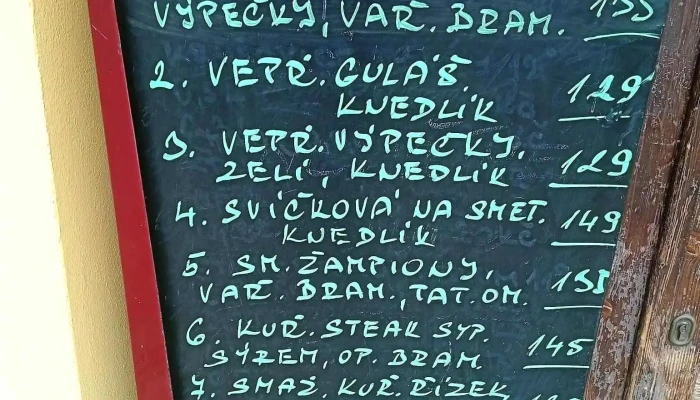 VÝPEČKY, VAŘ. BRAM. 155
2. VEPŘ. GULÁŠ, 129
KNEDLÍK
3. VEPŘ. VÝPEČKY, 129
ZELÍ, KNEDLÍK
4. SVÍČKOVÁ NA SMET. 149
KNEDLÍK
5. SM. ŽAMPIONY, 155
VAŘ. BRAM., TAT. OM.
6. KUŘ. STEAK SYP. 145
SÝREM, OP. BRAM.
7. SMAŽ. KUŘ. ŘÍZEK